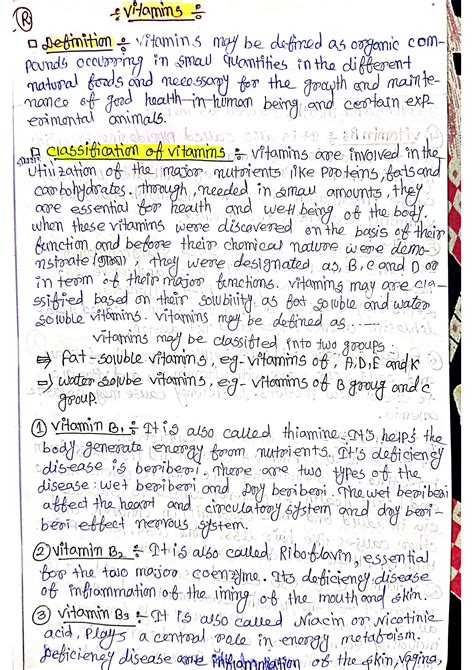 R
÷ Vitamins ÷
□ Definition ÷ vitamins may be defined as organic com-
pounds occurring in small quantities in the different
natural foods and necessary for the growth and mainte-
nance of good health in human being and certain exp
erimental animals.
□ Classification of vitamins ÷ vitamins are involved in the
Utilization of the major nutrients like proteins, fats and
carbohydrates. through, needed in small amounts, they
are essential for health and well being of the body.
when these vitamins were discovered on the basis of their
function and before their chemical nature were demo-
nstrate, they were designated as, B, C and D or
in term of their major functions. vitamins may are cla-
ssified based on their solubility as fat soluble and water
soluble vitamins. vitamins may be defined as......
vitamins may be classified into two groups.
⇒ Fat-soluble vitamins, eg-vitamins of, A, D, E and K
⇒ water soluble vitamins, eg- vitamins of B group and C
group.
① vitamin B1 ÷ It is also called thiamine. It's helps the
body generate energy from nutrients. It's deficiency
disease is beriberi. There are two types of the
disease: wet beriberi and Dry beriberi. The wet beriberi
affect the heart and circulatory system and dry beri-
beri effect nervous system.
② vitamin B2 ÷ It is also called Riboflavin, essential
for the two major coenzyme. Its deficiency disease
of inflammation of the lining of the mouth and skin.
③ vitamin B3 ÷ It is also called Niacin or Nicotinic
acid, plays a central role in energy metabolism.
Deficiency disease are inflammation of the skin,